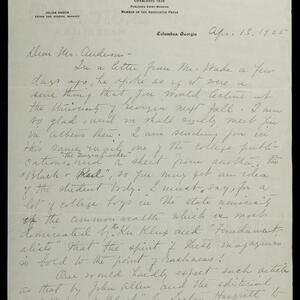 JULIAN HARRIS
EDITOR AND GENERAL MANAGER
ESTABLISHED 1828
PUBLISHED EVERY MORNING
MEMBER OF THE ASSOCIATED PRESS
Columbus Georgia Apr. 13, 1925
Dear Mr. Anderson -
In a letter from Mr. Wade a few
days ago, he spoke as if it were a
sure thing that you would lecture at
the University of Georgia next fall. I am
so glad, and we shall surely meet you
in Athens then. I am sending you in
this same mail one of the college publi-
cations, and a sheet from another, the
"Black + Red", so you may get an idea of
the student body. I must say, for a
lot of college boys in the state university
of the commonwealth which is most
dominated by Ku Klux and "Fundament-
alists" that the spirit of these magazines
is bold to the point of rashness!
One would hardly expect such articles
as that by John Allen and the editorial